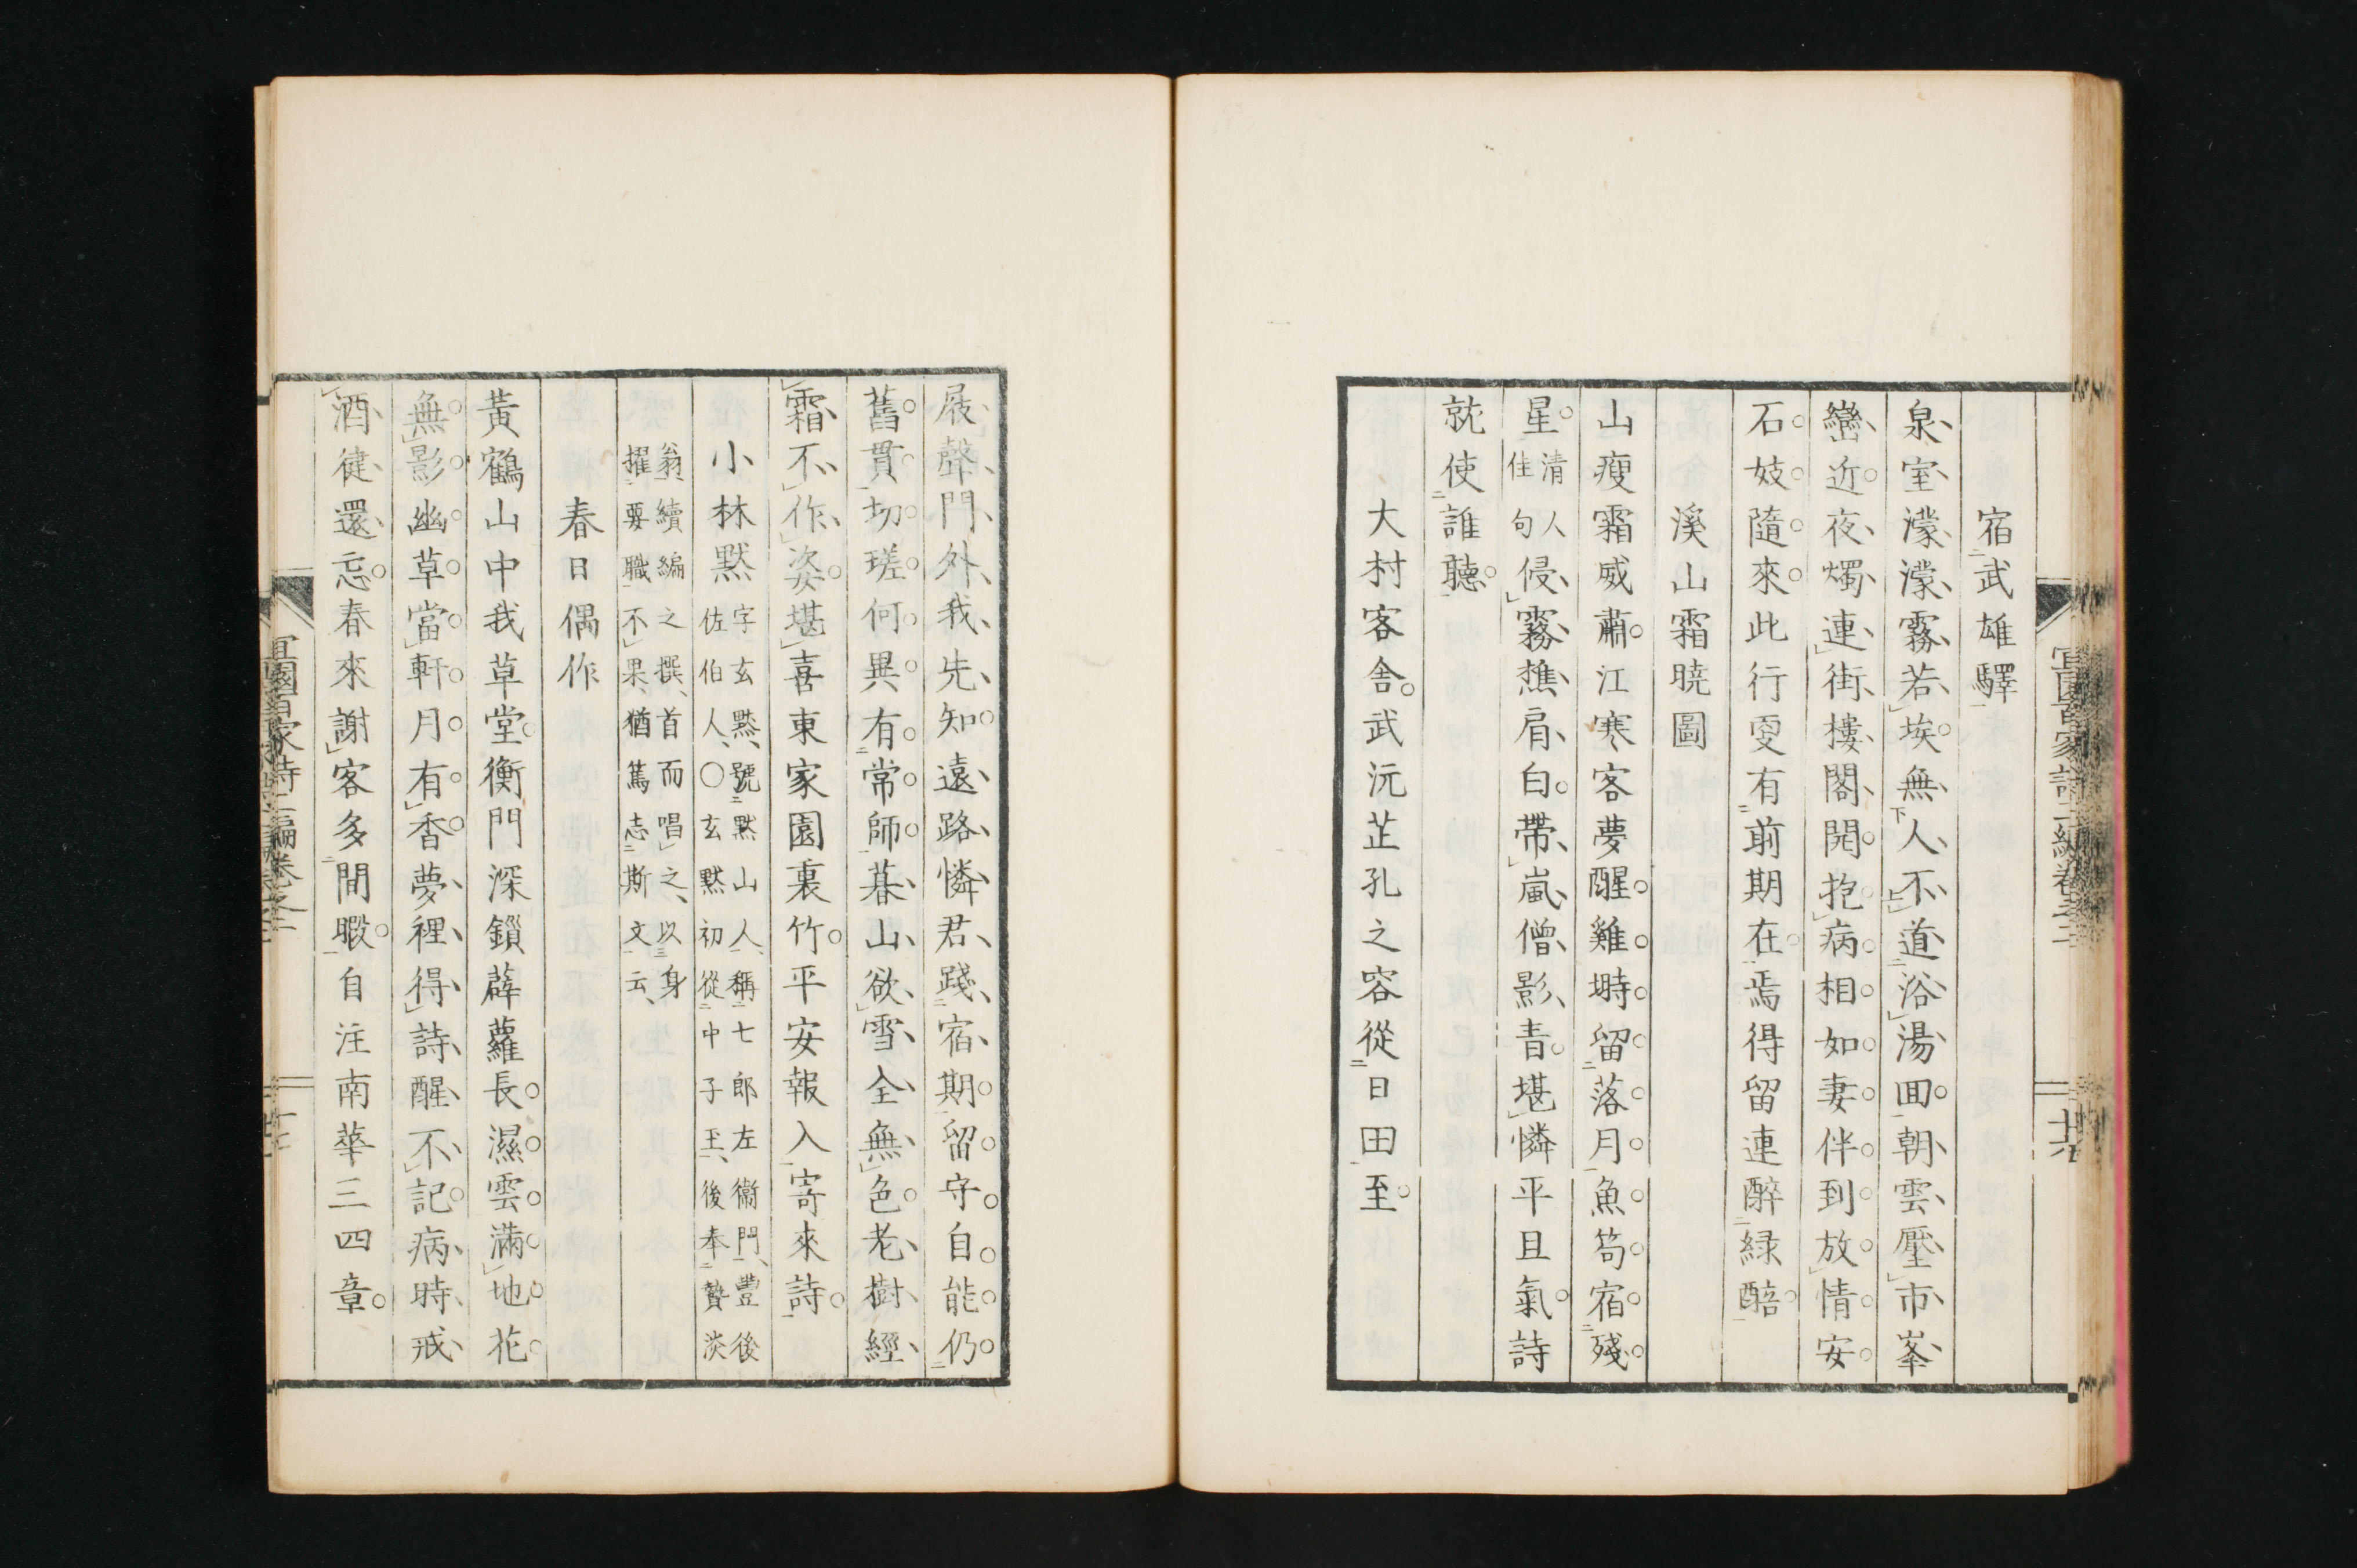 宿武雄驛
泉室濛濛霧若埃無人不道浴湯回朝雲壓市峯
巒近夜燭連街樓閣開抱病相如妻伴到放情安
石妓隨來此行更有前期在焉得留連醉綠醅
溪山霜曉圖
山瘦霜威肅江寒客夢醒雞塒留落月魚笱宿殘
星清人佳句侵霧樵肩白帶嵐僧影青堪憐平旦氣詩
就使誰聽
大村客舍武沅芷孔之容從日田至
屐聲門外我先知遠路憐君踐宿期留守自能仍
舊貫切瑳何異有常師暮山欲雪全無色老樹經
霜不作姿堪喜東家園裏竹平安報入寄來詩
小林默字玄默、號默山人、稱七郎左衞門、豐後
佐伯人、○玄默初從中子玉、後奉贄淡
翁、續編之撰、首而唱之、以身
擢要職不果、猶篤志斯文云、
春日偶作
黃鶴山中我草堂衡門深鎖薜蘿長濕雲滿地花
無影幽草當軒月有香夢裡得詩醒不記病時戒
酒健還忘春來謝客多閒暇自注南華三四章